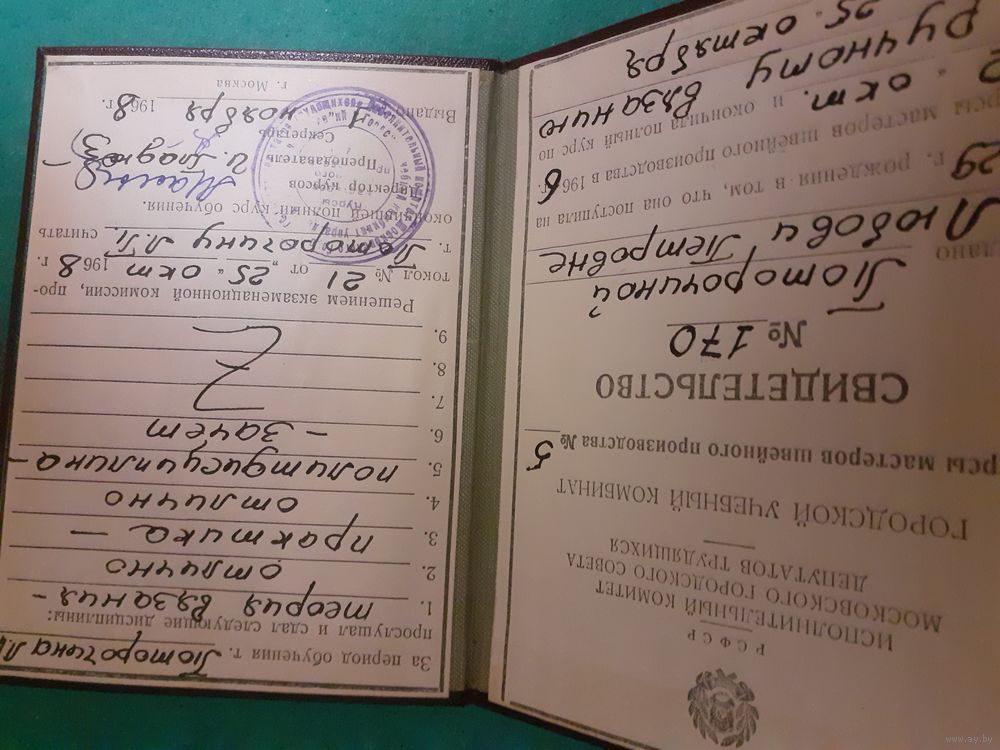 РСФСР
ИСПОЛНИТЕЛЬНЫЙ КОМИТЕТ
МОСКОВСКОГО ГОРОДСКОГО СОВЕТА
ДЕПУТАТОВ ТРУДЯЩИХСЯ
ГОРОДСКОЙ УЧЕБНЫЙ КОМБИНАТ
рсы мастеров швейного производства № 5
СВИДЕТЕЛЬСТВО
№ 170
Поторочиной
Любови Петровне
29 г. рождения в том, что она поступила на
рсы мастеров швейного производства в 1966 г.
окт. и окончила полный курс по
ручному вязанию
25. октября
За период обучения т. Поторочина Л.
прослушал и сдал следующие дисциплины:
1. теория вязания -
2. отлично
3. практика —
4. отлично
5. политдисциплина -
6. - зачёт
7.
8.
9.
Решением экзаменационной комиссии, про-
токол № 21 от „25" окт 1968 г.
т. Поторочину Л.П. считать
окончившей полный курс обучения.
Директор курсов
Преподаватель
Секретарь
Выдано 1 ноября 1968 г.
г. Москва
www.ay.by